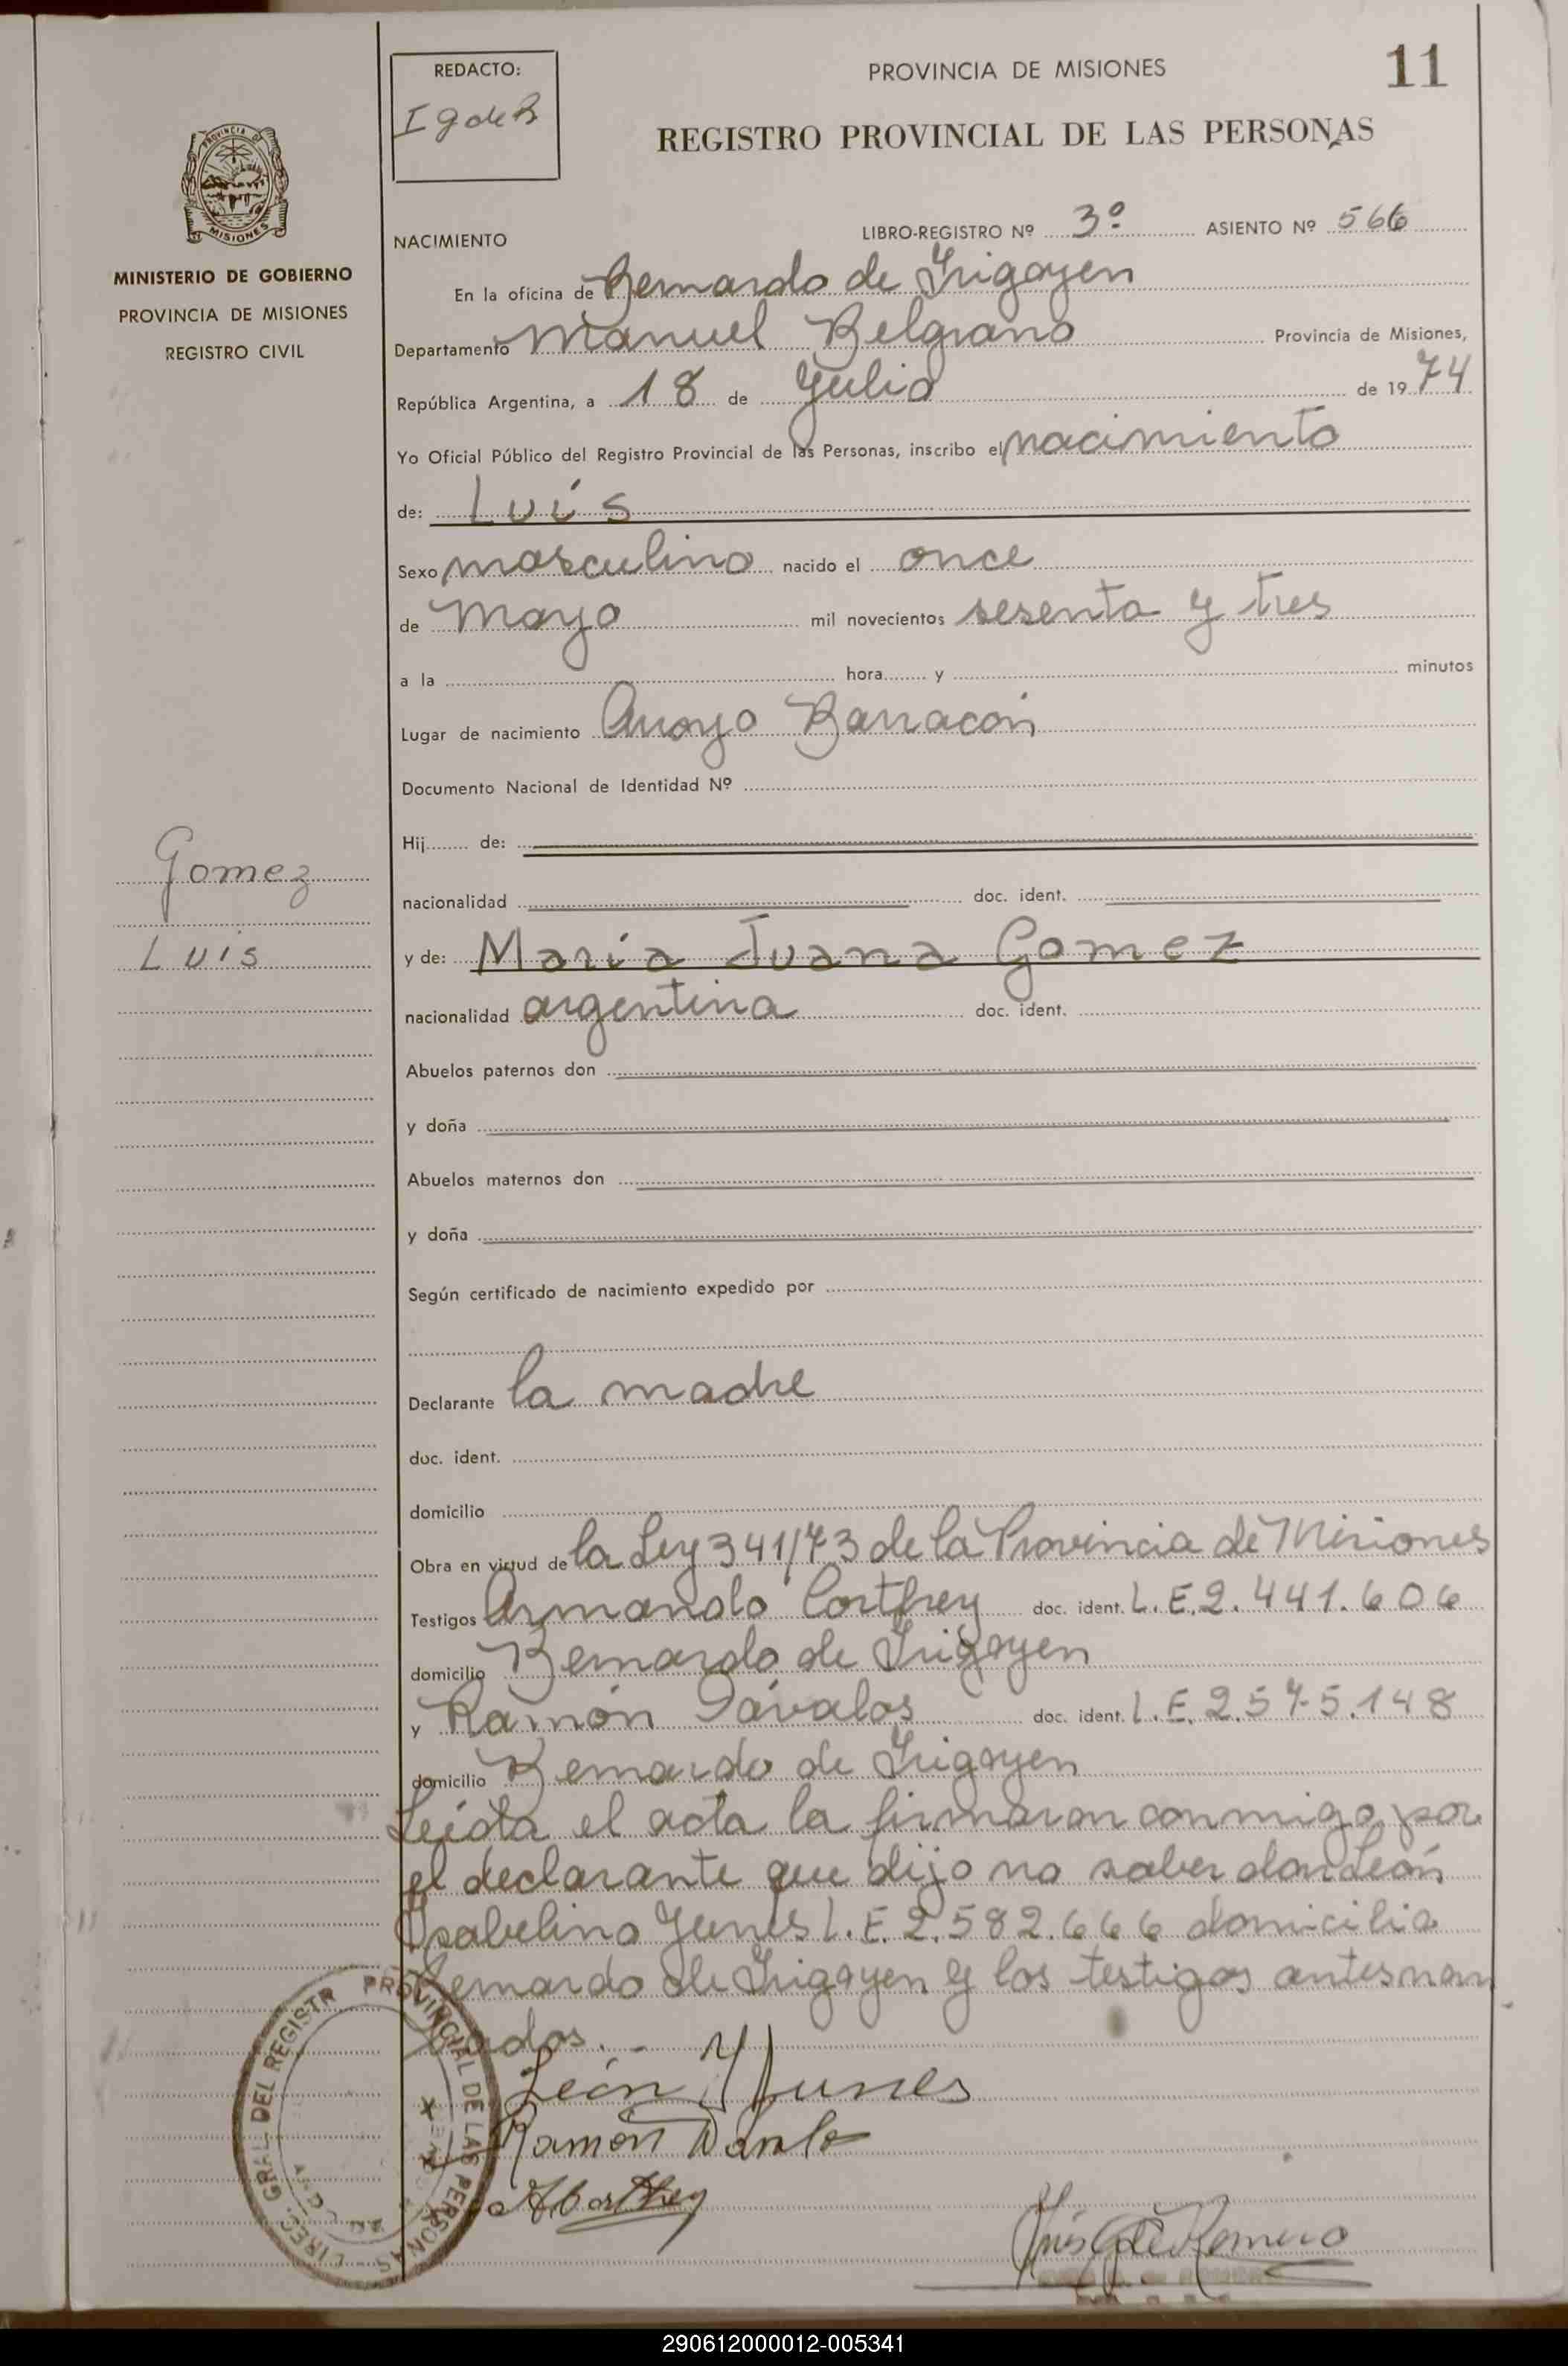 REDACTO:
I G de R
PROVINCIA DE MISIONES
11
REGISTRO PROVINCIAL DE LAS PERSONAS
MISIONES
MINISTERIO DE GOBIERNO
PROVINCIA DE MISIONES
REGISTRO CIVIL
NACIMIENTO
LIBRO-REGISTRO Nº 3º ASIENTO Nº 566
En la oficina de Bernardo de Irigoyen
Departamento Manuel Belgrano Provincia de Misiones,
República Argentina, a 18 de Julio de 1974
Yo Oficial Público del Registro Provincial de las Personas, inscribo el nacimiento
de: Luis
Sexo masculino nacido el once
de Mayo mil novecientos sesenta y tres
a la hora y minutos
Lugar de nacimiento Arroyo Barracón
Documento Nacional de Identidad Nº
Hij de:
nacionalidad doc. ident.
Gomez
Luis
y de: María Juana Gomez
nacionalidad argentina doc. ident.
Abuelos paternos don
y doña
Abuelos maternos don
y doña
Según certificado de nacimiento expedido por
Declarante la madre
doc. ident.
domicilio
Obra en virtud de la Ley 341/73 de la Provincia de Misiones
Testigos Armando Cortfrey doc. ident. L.E. 2.441.606
domicilio Bernardo de Irigoyen
y Ramón Dávalos doc. ident. L.E. 2.575.148
domicilio Bernardo de Irigoyen
Leída el acta la firmaron conmigo, por
el declarante que dijo no saber don León
Isabelino Yunes L.E. 2.582.666 domicilia
Bernardo de Irigoyen y los testigos antes nom
brados.-
León Yunes
Ramón
DIREC. GRAL. DEL REGISTR PROVINCIAL DE LAS PERSONAS
Inés G de Romero
290612000012-005341